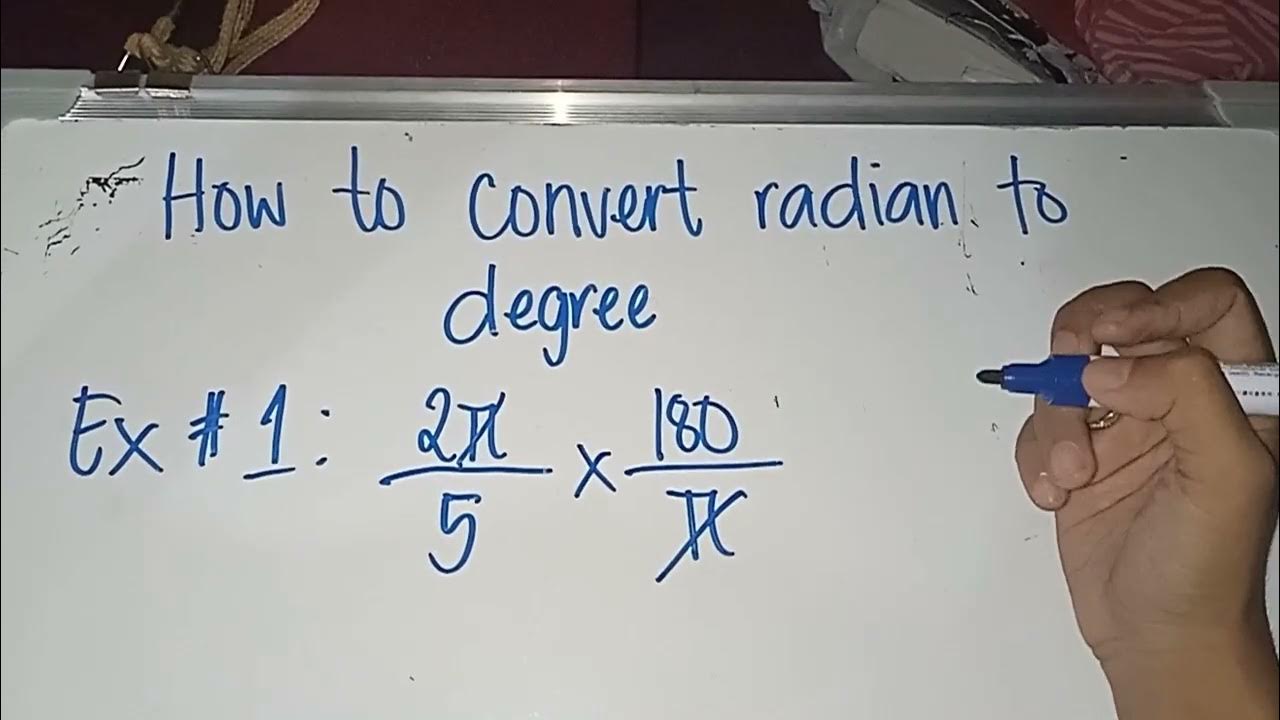 How to convert radian to
degree
Ex # 1: 2π/5 x 180/π